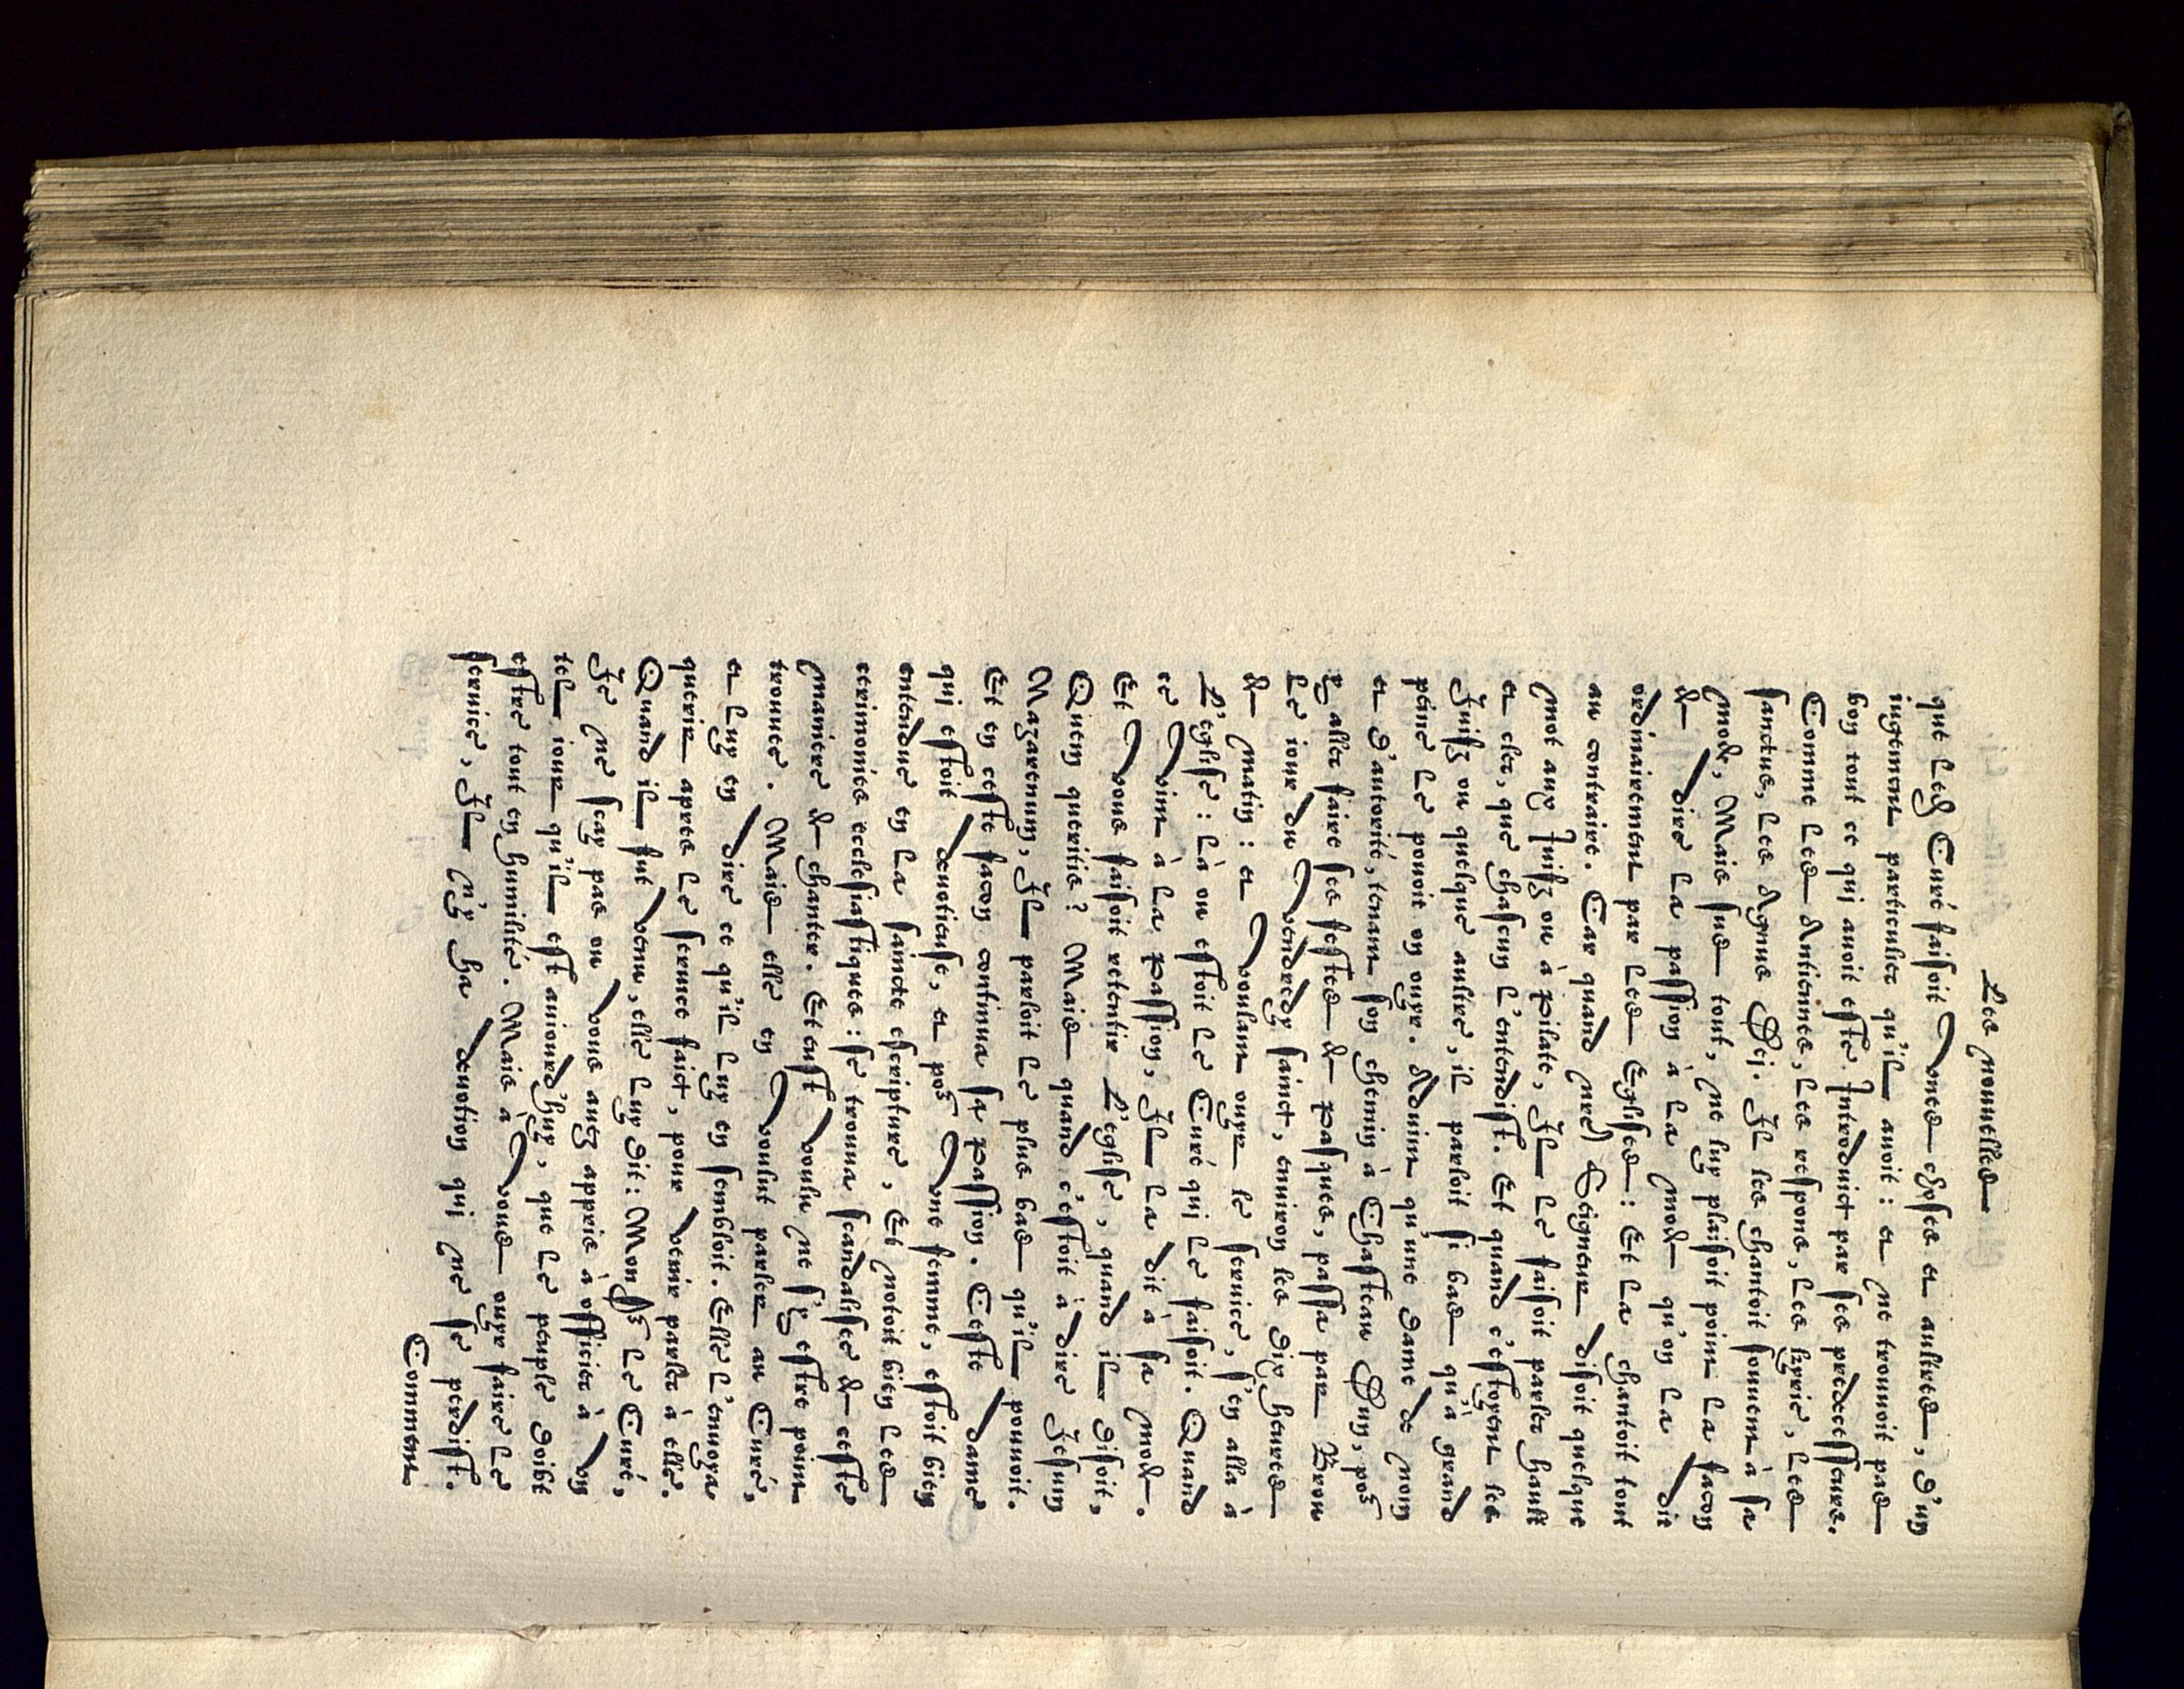 Les nouuelles
que led Curé faisoit dunes choses et aultres, d'un
iugement particulier qu'il auoit: et ne trouuoit pas
bon tout ce qui auoit esté Introduict par ses predecesseurs.
Comme les Antiennes, les respons, les kyrie, les
sanctus, les Agnus Dei. Il les chantoit souuent à sa
mode, Mais sus tout, ne luy plaisoit point la facon
de dire la passion à la mode qu'on la dit
ordinairement par les Eglises: Et la chantoit tout
au contraire. Car quand nre Seigneur disoit quelque
mot aux Juifz ou à Pilate, Il le faisoit parler hault
et cler, que chascun l'entendist. Et quand c'estoyent les
Juifz ou quelque aultre, il parloit si bas qu'à grand
peine le pouoit on ouyr. Aduint qu'une dame de nom
et d'autorité, tenant son chemin à Chasteau Dun, po~
y aller faire ses festes de pasques, passa par Brou
le iour du vendredy sainct, enuiron les dix heures
de matin: et voulant ouyr le seruice, s'en alla à
L'eglise: là ou estoit le Curé qui le faisoit. Quand
ce vint à la Passion, Il la dit à sa mode.
Et vous faisoit retentir L'eglise, quand il disoit,
Quem queritis? Mais quand c'estoit à dire Jesum
Nazarenum, Il parloit le plus bas qu'il pouuoit.
Et en ceste facon continua sa passion. Ceste dame
qui estoit deuotieuse, et po~ vne femme, estoit bien
entendue en la saincte escripture, Et notoit bien les
cerimonies ecclesiastiques: se trouua scandalisee de ceste
maniere de chanter. Et eust voulu ne s'y estre point
trouuee. Mais elle en voulut parler au Curé,
et luy en dire ce qu'il luy en sembloit. Elle l'enuoya
querir apres le seruice faict, pour venir parler à elle.
Quand il fut venu, elle luy dit: Monsr le Curé,
Je ne scay pas ou vous auez appris à officier à vn
tel iour qu'il est auiourd'huy, que le peuple doibt
estre tout en humilité. Mais à vous ouyr faire le
seruice, Il n'y ha deuotion qui ne se perdist.
Comment